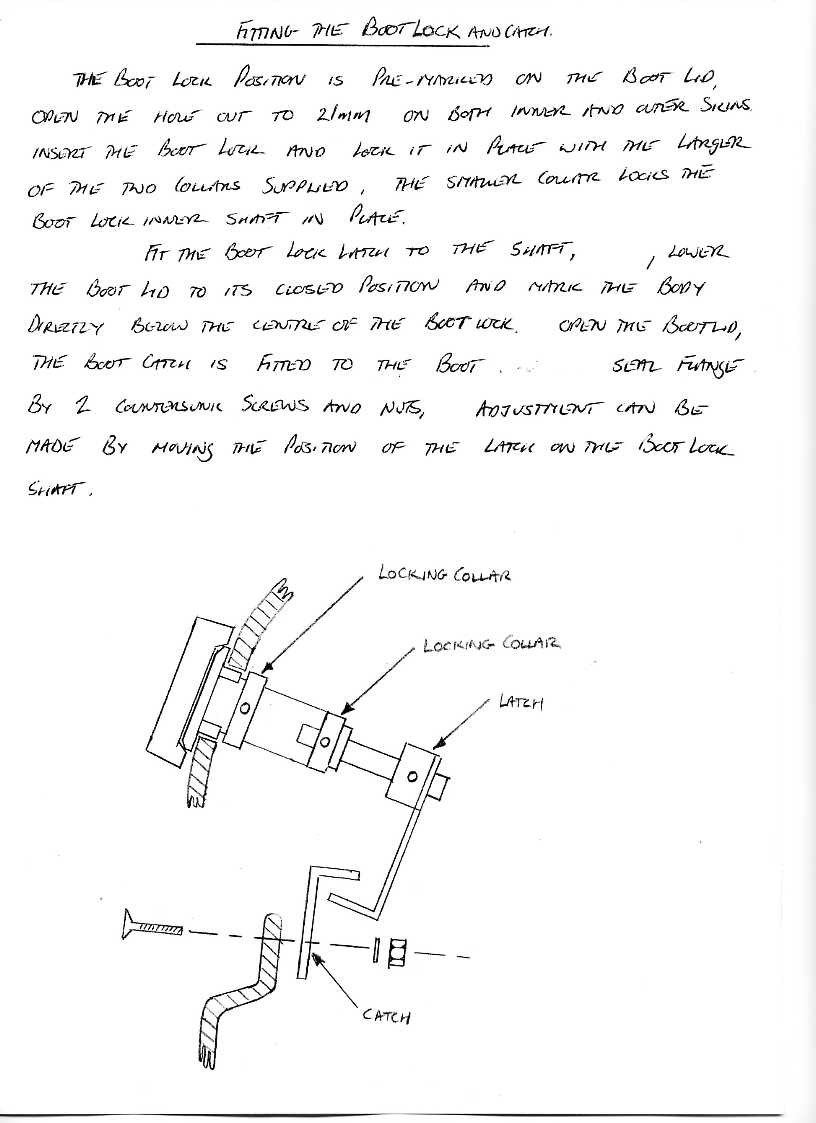 FITTING THE BOOT LOCK AND CATCH.
THE BOOT LOCK POSITION IS PRE-MARKED ON THE BOOT LID,
OPEN THE HOLE OUT TO 21mm ON BOTH INNER AND OUTER SKINS.
INSERT THE BOOT LOCK AND LOCK IT IN PLACE WITH THE LARGER
OF THE TWO COLLARS SUPPLIED, THE SMALLER COLLAR LOCKS THE
BOOT LOCK INNER SHAFT IN PLACE.
FIT THE BOOT LOCK LATCH TO THE SHAFT, , LOWER
THE BOOT LID TO ITS CLOSED POSITION AND MARK THE BODY
DIRECTLY BELOW THE CENTRE OF THE BOOT LOCK. OPEN THE BOOTLID,
THE BOOT CATCH IS FITTED TO THE BOOT . .. SEAL FLANGE
BY 2 COUNTERSUNK SCREWS AND NUTS, ADJUSTMENT CAN BE
MADE BY MOVING THE POSITION OF THE LATCH ON THE BOOT LOCK
SHAFT.
LOCKING COLLAR
LOCKING COLLAR
LATCH
CATCH